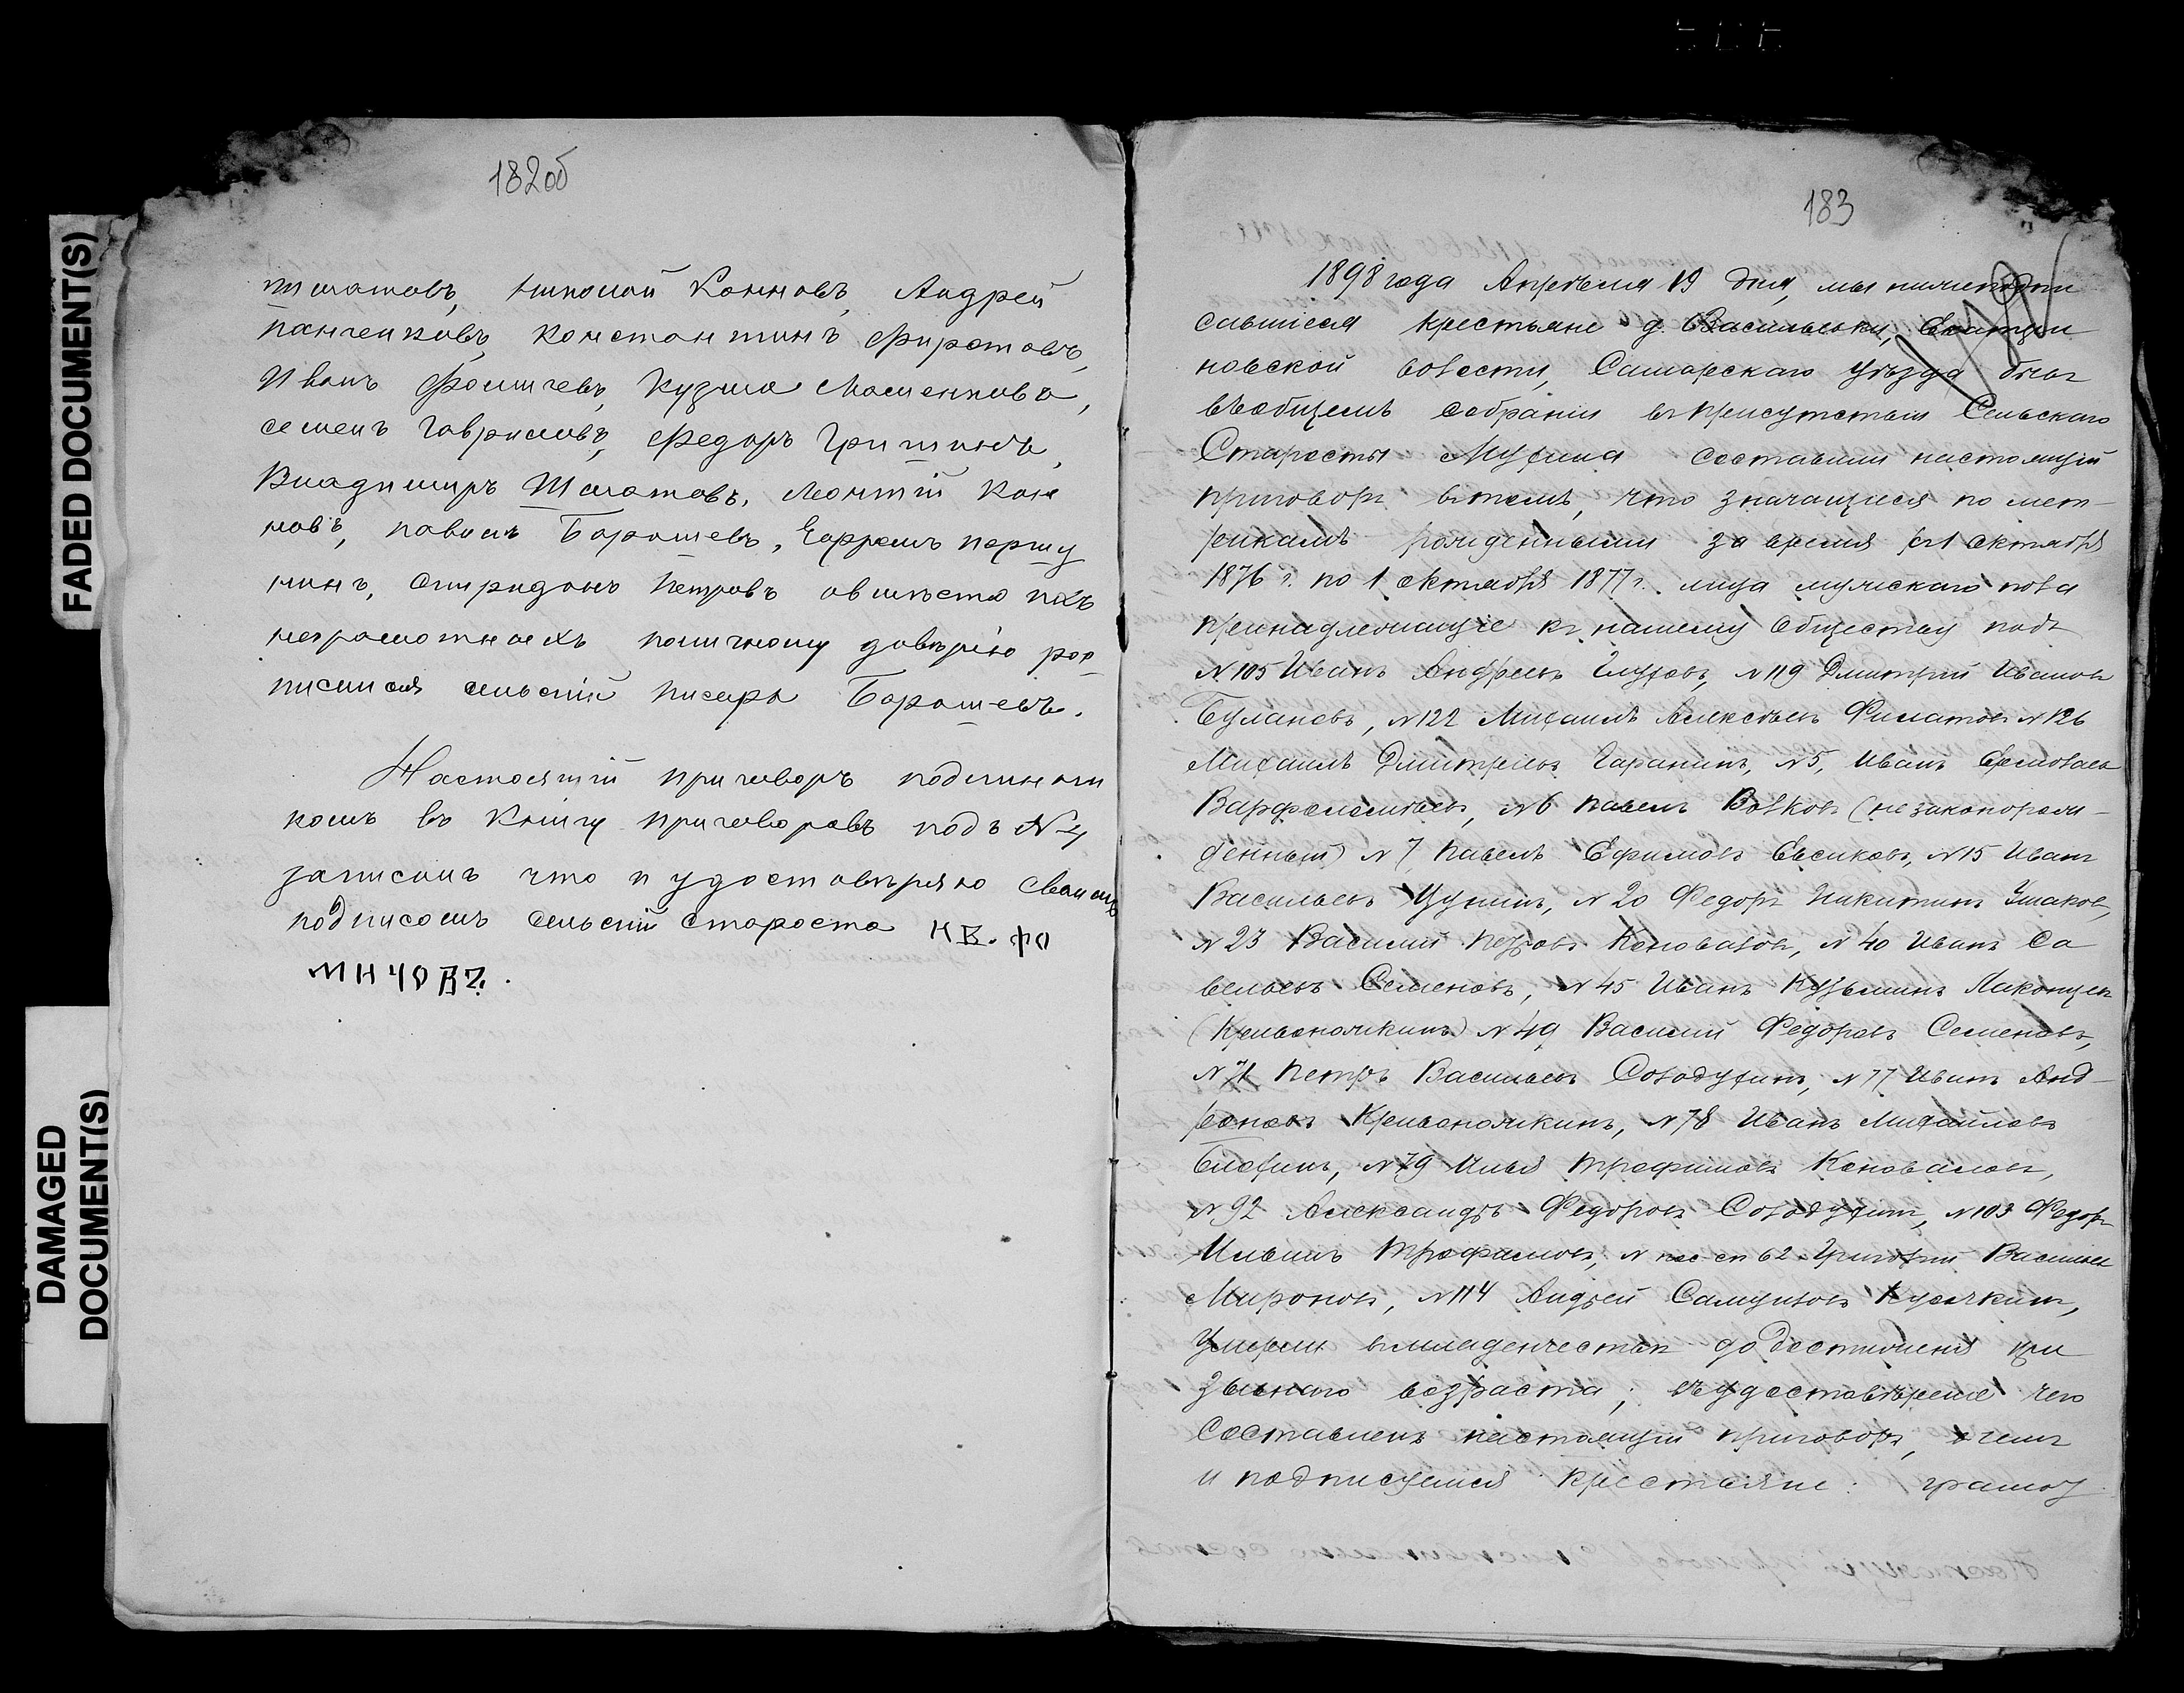 182об
Шматовъ, Николай Конновъ, Андрей
Панченковъ, Константинъ Фирстовъ,
Иванъ Фомичевъ, Кузма Мошенковъ,
Семенъ Гавриловъ, Федоръ Гришинъ,
Владимиръ Шматовъ, Леонтій Кон
новъ, Павилъ Борошевъ, Ефремъ Паршу
нинъ, Спиридонъ Петровъ авместо ихъ
неграмотныхъ поличному доверію рос
писился сельскій писарь Борошевъ.
Настоящій приговоръ подлинни
комъ въ книгу приговоровъ подъ № 4
записанъ что и удостовѣряю своимъ
подписомъ сельскій староста ИВ. ФО
МИЧОВЪ.
183
1898 года Апрѣля 19 дня, мы нижеподпи
савшіеся крестьяне д. Васильевки, Екатери
новской волости, Самарскаго уѣзда бывъ
въ общемъ собраніи въ присутствіи Сельскаго
Старосты составили настоящій
приговоръ въ томъ, что значащіеся по мет-
рикамъ рожденными за время съ 1 октября
1876 г. по 1 октября 1877 г. лица мужскаго пола
принадлежащіе къ нашему обществу подъ
№ 105 Иванъ Андреевъ Глуховъ, № 119 Дмитрій Ивановъ
Булановъ, № 122 Михаилъ Алексѣевъ Филатовъ № 126
Михаилъ Дмитріевъ Гаранинъ, № 5, Иванъ
Варфоломѣевъ, № 6 Павелъ Волковъ (незаконорож-
денный) № 7 Павелъ Ефимовъ Евсиковъ, № 15 Иванъ
Васильевъ Цунинъ, № 20 Федоръ Никитинъ Ушаковъ,
№ 23 Василій Петровъ Коноваловъ, № 40 Иванъ Са
вельевъ Семеновъ, № 45 Иванъ Кузьминъ
(Кривоножкинъ) № 49 Василій Федоровъ Семеновъ,
№ 71 Петръ Васильевъ Солодухинъ, № 77 Иванъ Анд-
роновъ Кривоножкинъ, № 78 Иванъ Михайловъ
Блохинъ, № 79 Илья Трофимовъ Коноваловъ,
№ 92 Александръ Федоровъ Солодухинъ, № 103 Федоръ
Ильинъ Трофимовъ, № пос. сп 62 Григорій Васильевъ
Мироновъ, № 114 Андрей Самуиловъ Кусочкинъ,
умерли въ младенчествѣ до достиженія при
зывнаго возраста; въ удостовѣреніе чего
составленъ настоящій приговоръ, въ чемъ
и подписуемся крестьяне: грамот